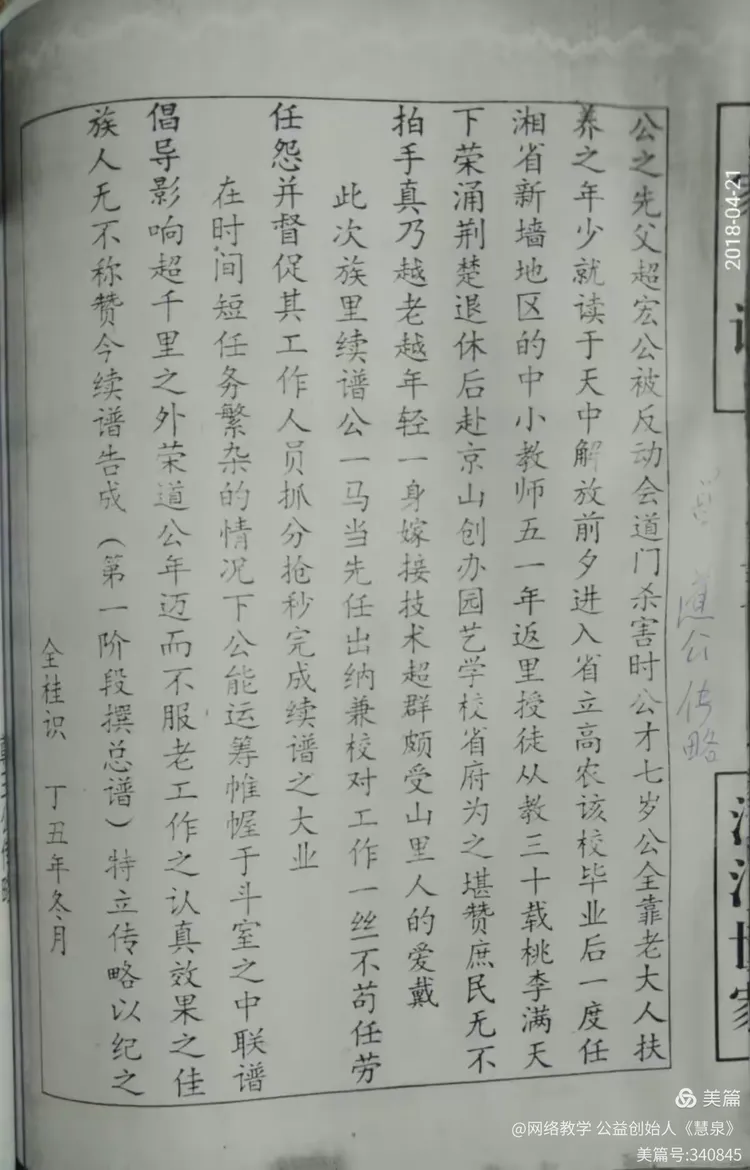 公之先父超宏公被反动会道门杀害时公才七岁公全靠老大人扶
养之年少就读于天中解放前夕进入省立高农该校毕业后一度任
湘省新墙地区的中小教师五一年返里授徒从教三十载桃李满天
下荣涌荆楚退休后赴京山创办园艺学校省府为之堪赞庶民无不
拍手真乃越老越年轻一身嫁接技术超群颇受山里人的爱戴
此次族里续谱公一马当先任出纳兼校对工作一丝不苟任劳
任怨并督促其工作人员抓分抢秒完成续谱之大业
在时间短任务繁杂的情况下公能运筹帷幄于斗室之中联谱
倡导影响超千里之外荣道公年迈而不服老工作之认真效果之佳
族人无不称赞今续谱告成（第一阶段撰总谱）特立传略以纪之
全桂识 丁丑年冬月
公传略
2018-04-21
美篇
@网络教学 公益创始人《慧泉》
美篇号:340845